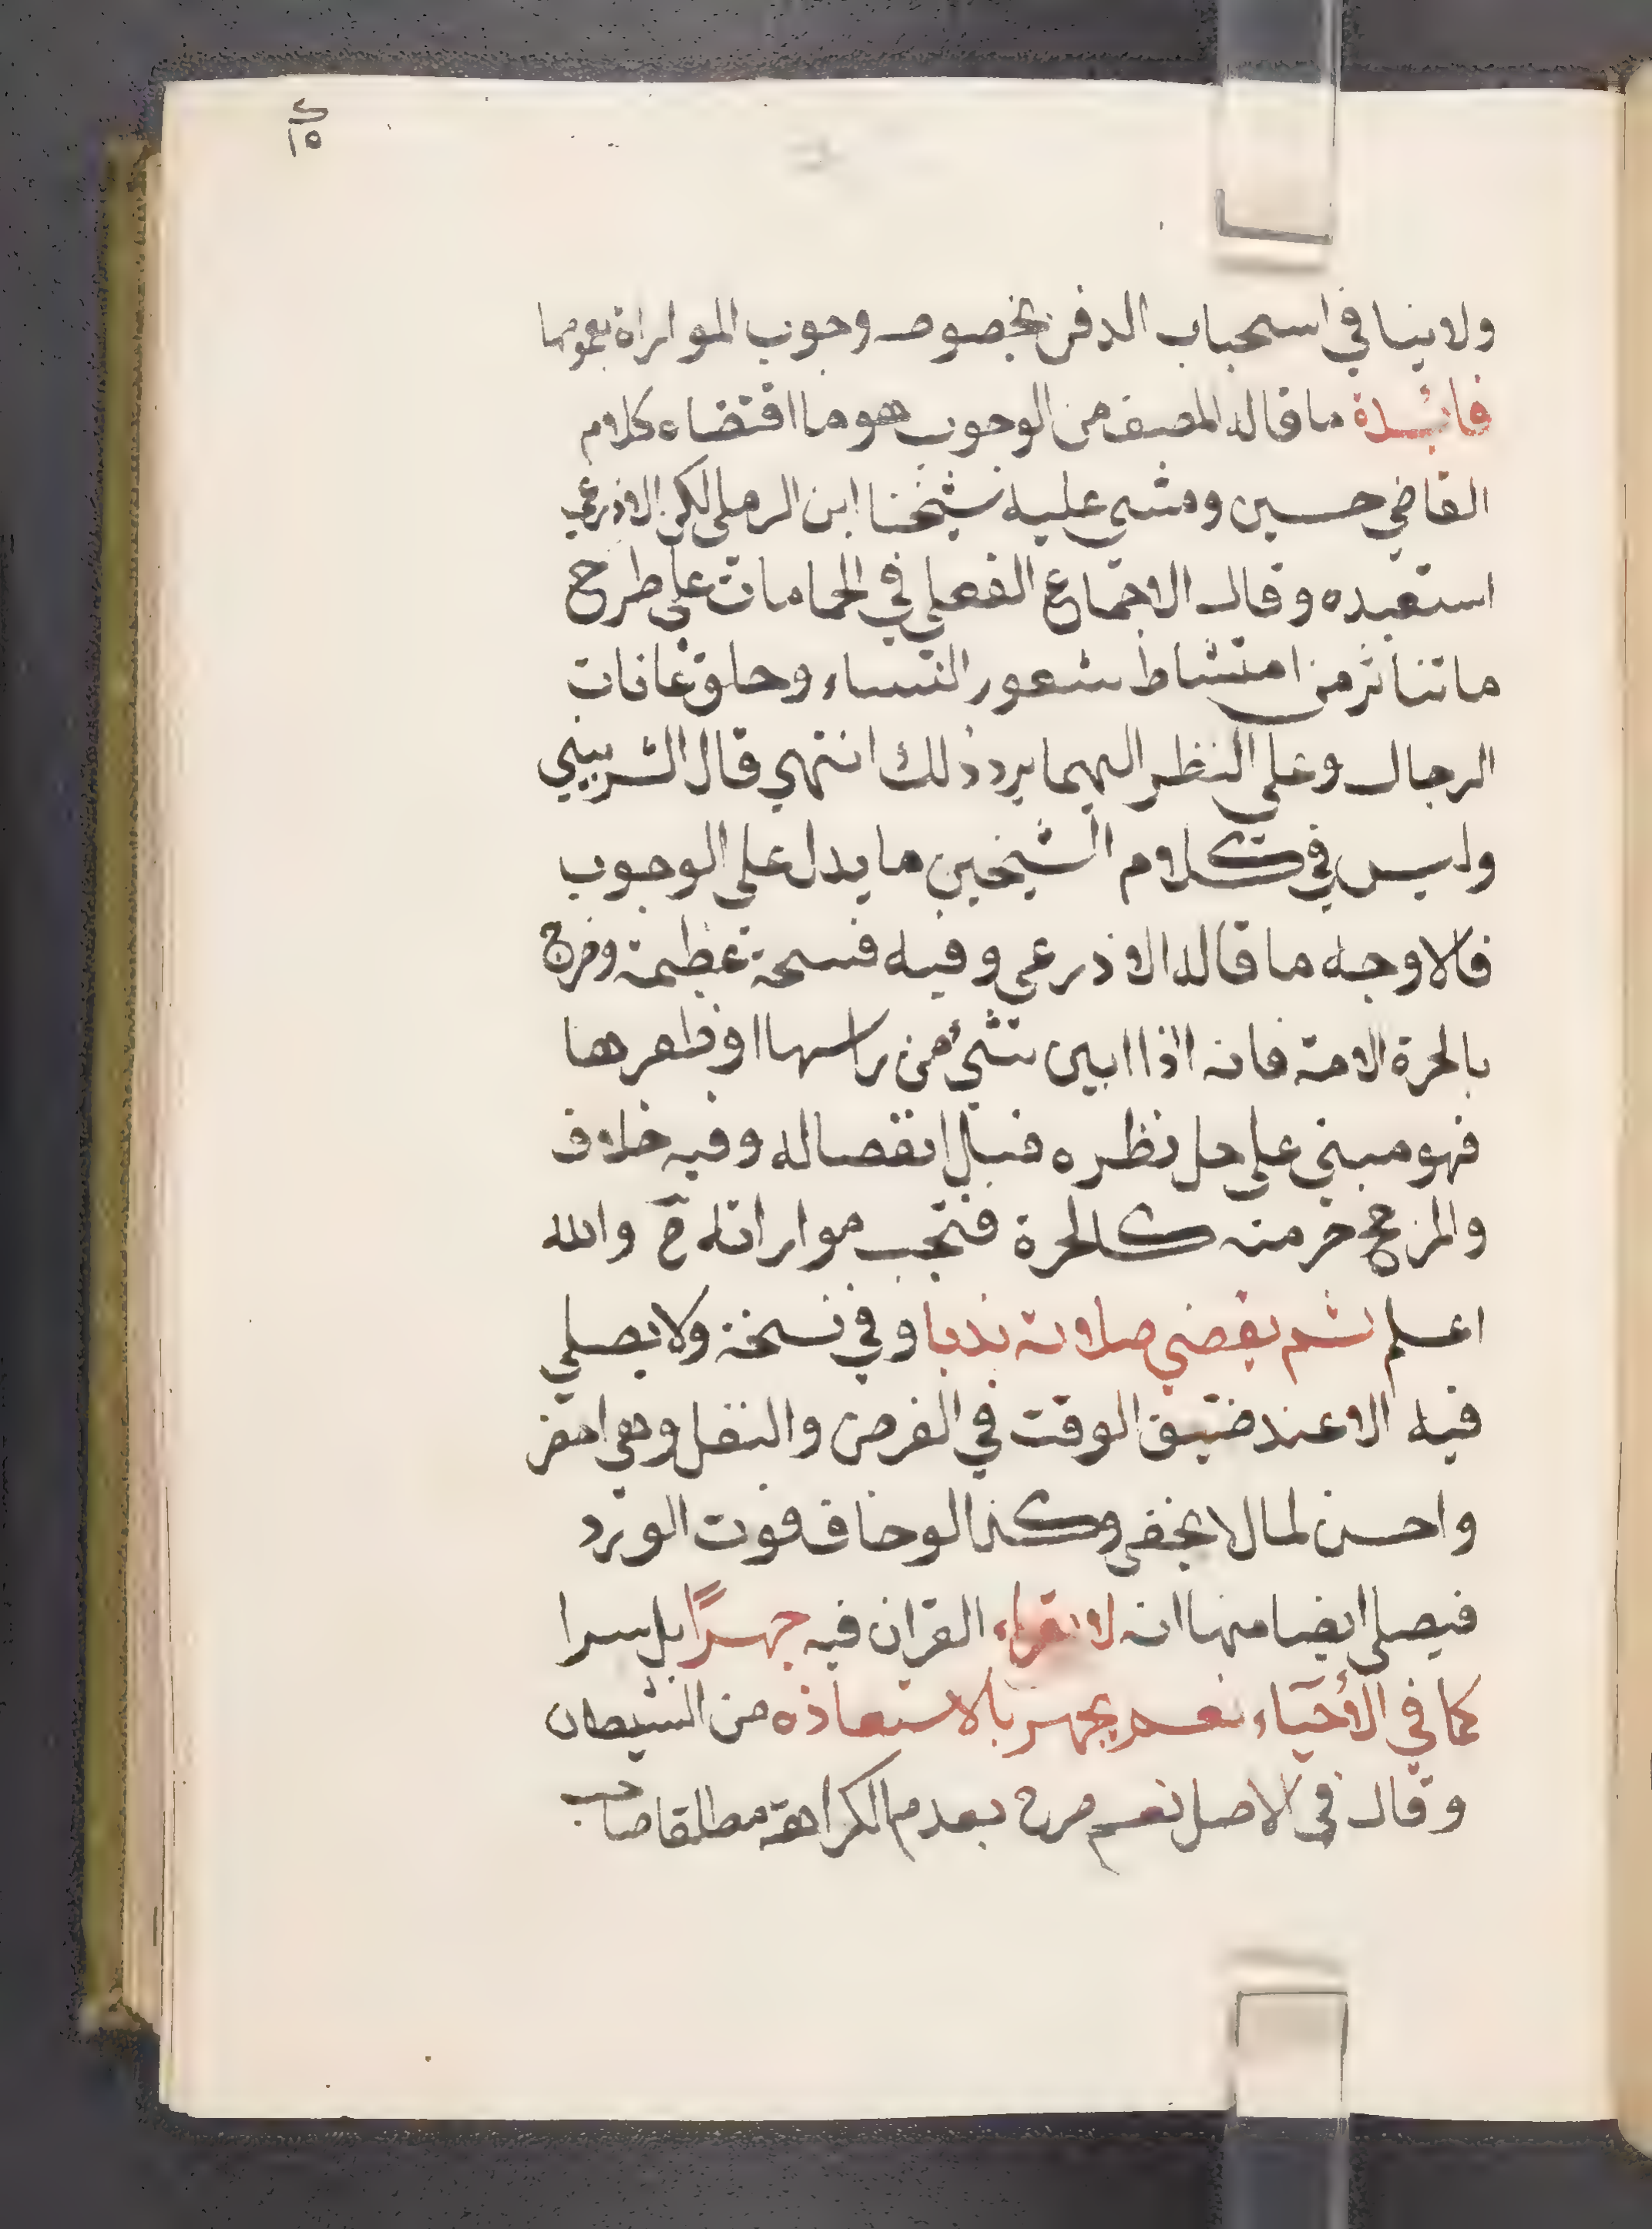 ١٥
ولا ينافي استحباب الدفن بخصوصه وجوب المواراة بعمومها
فائدة ما قاله المصنف من الوجوب هو ما اقتضاه كلام
القاضي حسين ومشي عليه شيخنا ابن الرملي لكن الاذرعي
استبعده وقال الاجماع الفعلي في الحمامات علي طرح
ما تناثر من امتشاط شعور النساء وحلق عانات
الرجال وعلي النظر اليهما يرد ذلك انتهي قال الشربيني
وليس في كلام الشيخين ما يدل علي الوجوب
فالاوجه ما قاله الاذرعي وفيه فسحة عظيمة وخرج
بالحرة الامة فانه اذا ابين شيء من راسها او ظفرها
فهو مبني علي حل نظره قبل انفصاله وفيه خلاف
والمرجح حرمته كالحرة فتجب مواراته ح والله
اعلم ثم يقضي صلاته ندبا وفي نسخة ولا يصلي
فيه الا عند ضيق الوقت في الفرض والنفل وهي
واحسن لما لا يخفي وكذا لو خاف فوت الورد
فيصلي ايضا منها انه لا يقراء القران فيه جهرًا بل سرا
كما في الأحياء نعم يجهر بالاستعاذه من الشيطان
وقال في الاصل نعم صرح بعدم الكراهة مطلقا صاحب